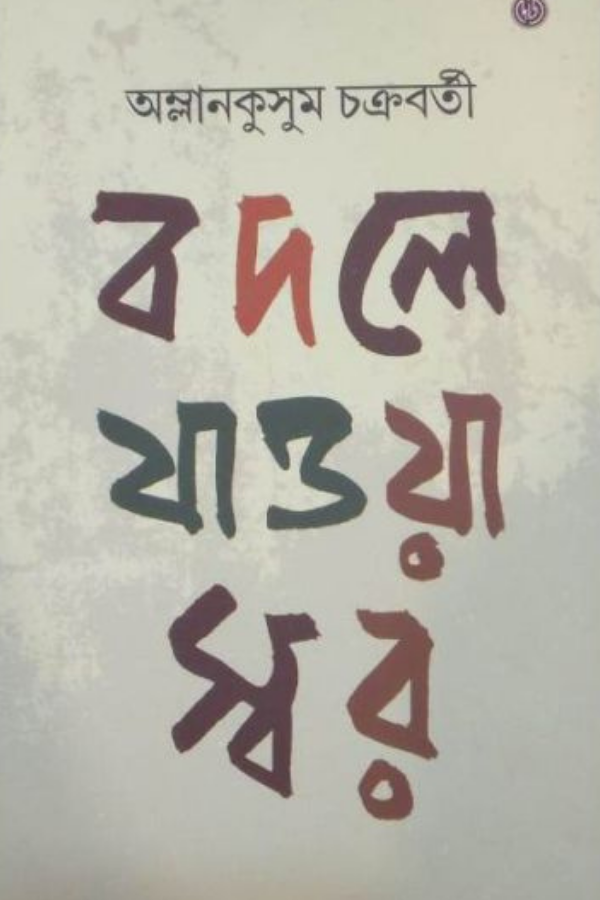 অম্লানকুসুম চক্রবর্তী
বদলে
যাওয়া
স্বর